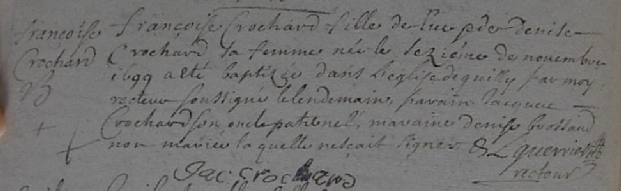 françoise
Crochard
B
françoise Crochard fille de Luc et de denise
Crochard sa femme née le sezième de novembre
1699 a été baptizée dans l'eglise de quilly par moy
recteur soussigné le lendemain, parain Jacques
Crochard son oncle paternel, maraine denise brossaud
non mariée laquelle ne sçait signer
recteur
Jac: Crochard